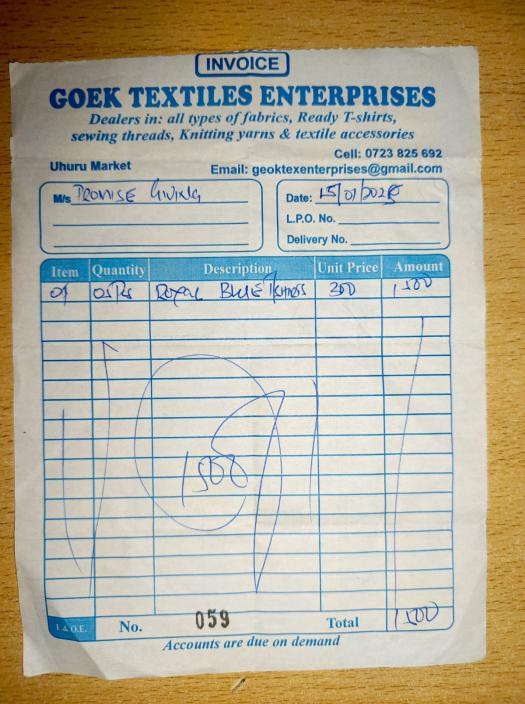 INVOICE
GOEK TEXTILES ENTERPRISES
Dealers in: all types of fabrics, Ready T-shirts,
sewing threads, Knitting yarns & textile accessories
Cell: 0723 825 692
Uhuru Market Email: geoktexenterprises@gmail.com
M/s PROMISE GIVING
Date: 15/01/2025
L.P.O. No.
Delivery No.
Item Quantity Description Unit Price Amount
01 ROYAL BLUE 300 1500
1500
E.&O.E. No. 059 Total 1500
Accounts are due on demand